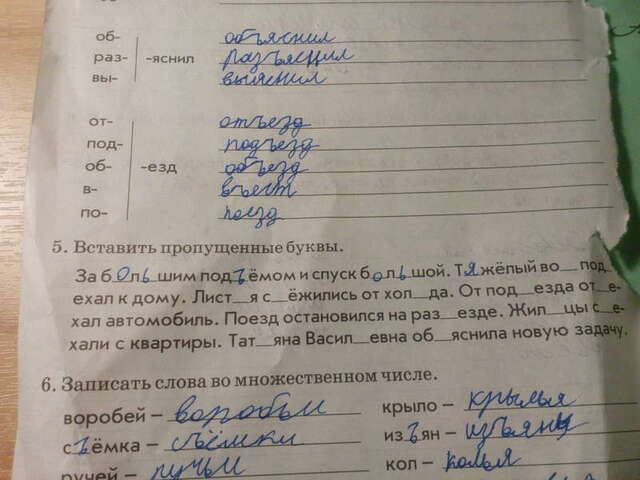 об- объяснил
раз- -яснил разъяснил
вы- выяснил
от- отъезд
под- подъезд
об- -езд объезд
в- въест
по- поезд
5. Вставить пропущенные буквы.
За большим подъёмом и спуск большой. Тяжёлый во__ под__
ехал к дому. Лист__я с__ёжились от хол__да. От под__езда от__е-
хал автомобиль. Поезд остановился на раз__езде. Жил__цы с__е-
хали с квартиры. Тат__яна Васил__евна об__яснила новую задачу.
6. Записать слова во множественном числе.
воробей – воробьи крыло – крылья
съёмка – съёмки изъян – изъяны
ручей – ручьи кол – колья